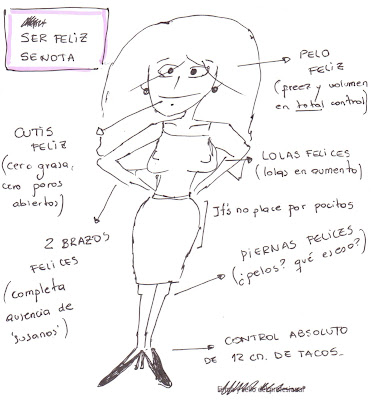 SER FELIZ
SE NOTA
PELO
FELIZ
(preez y volumen
en total control)
CUTIS
FELIZ
(cero grasa,
cero poros
abiertos)
LOLAS FELICES
(lolas en aumento)
It's no place por pocitos
2 BRAZOS
FELICES
(completa
ausencia de
'susanos')
PIERNAS FELICES
(¿pelos? qué es eso?)
CONTROL ABSOLUTO
DE 12 CM. DE TACOS_